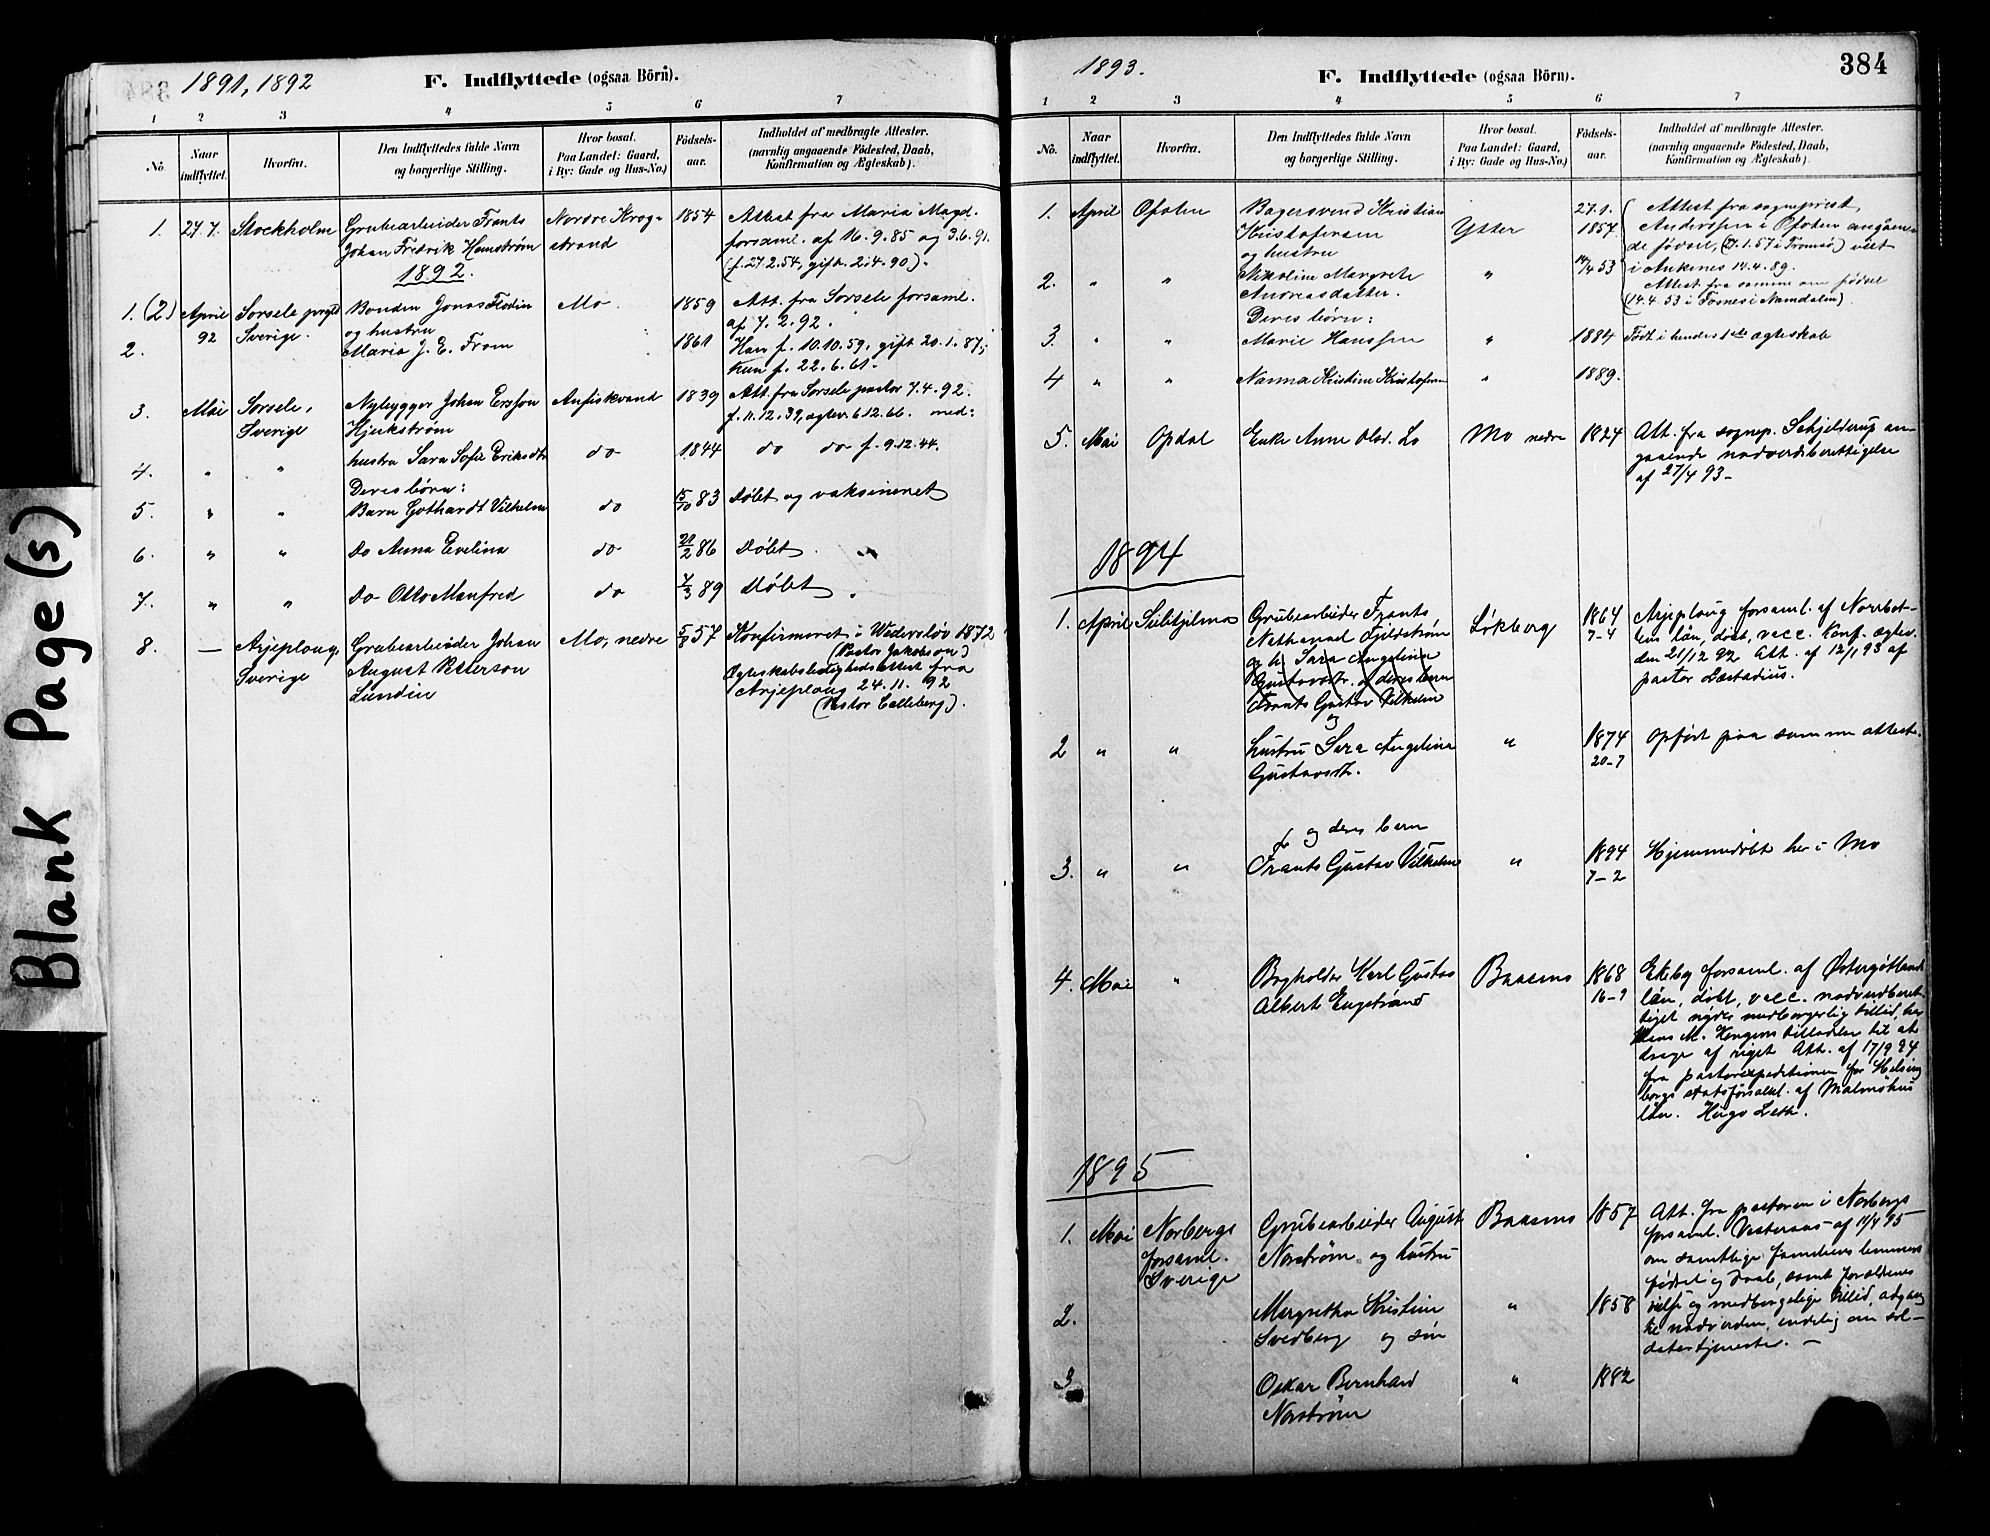 Blank Page(s)
1891, 1892
F. Indflyttede (ogsaa Börn).
1 2 3 4 5 6 7
No. Naar indflyttet. Hvorfra. Den Indflyttedes fulde Navn og borgerlige Stilling. Hvor bosat. Paa Landet: Gaard, i By: Gade og Hus-No.) Födselsaar. Indholdet af medbragte Attester. (navnlig angaaende Födested, Daab, Konfirmation og Ægteskab).
1. 27.7. Stockholm Grubearbeider Frants Nordre Krog- 1854 Attest fra Maria Magd.
Johan Fredrik Hamström strand forsaml. af 16.9.85 og 3.6.91.
(f. 27.2.54, gift. 2.4.90).
1892.
1. (2) April Sorsele Bonden Jonas Flodin Mo 1859 Att. fra Sorsele forsaml.
92 Sverige. og hustru af 7.2.92.
2. Maria J. E. From 1861 Han f. 10.10.59, gift 20.1.87,
Kun f. 22.6.61.
3. Mai Sorsele, Nybygger Johan Ersson 1839 Att. fra Sorsele pastor 7.4.92.
Sverige f. 11.12.39, ægtev. 6.12.66. med:
4. " " hustru Sara Sofie Eriksdtr do 1844 do do f. 9.12.44.
Deres børn:
5. " " Barn Gothardt Vilhelm do 15/10 83 Døbt og vaksineret
6. " " Do Anna Evelina do 21/2 86 Døbt. "
7. " " Do Otto Manfred do 7/3 89 Døbt.
8. — Arjeploug, Grubearbeider Johan Mo, nedre 5/8 57 Konfirmeret i Wederslöv 1872
Sverige August Peterson (Pastor Jakobson)
Lundin Ægteskabsledighedsattest fra
Arjeploug 24.11.92
(Pastor Calleberg).
1893.
F. Indflyttede (ogsaa Börn).
384
1 2 3 4 5 6 7
No. Naar indflyttet. Hvorfra. Den Indflyttedes fulde Navn og borgerlige Stilling. Hvor bosat. Paa Landet: Gaard, i By: Gade og Hus-No.) Födselsaar. Indholdet af medbragte Attester. (navnlig angaaende Födested, Daab, Konfirmation og Ægteskab).
1. April Ofoten Bagersvend Kristian Ytter 27.1. Attest fra sogneprest
Kristofersen 1857 Anderssen i Ofoten angåen-
og hustru de (27.1.57 i Tromsø) viet
2. " " Nikoline Margrete " 14/4 53 i Ankenes 14.4.89.
Andreasdatter. Attest fra samme om fødsel
Deres børn: (14.4.53 i Fosnes i Namdalen).
3. " " Marie Hanssen " 1884 Født i hendes 1ste ægteskab
4 " " Nanna Kristine Kristofersen " 1889.
5. Mai Opdal Enke Anne Olsd. Lo Mo nedre 1824 Att. fra sognep. Schjelderup an-
gaaende nadverdberettigelse
af 27/4 93 –
1894
1. April Sulitjelma Grubearbeider Frants Løkberg 1864 Arjeploug forsaml. af Norrbot-
Nathanael Fjellström 7–4 ten län, döbt, vacc. Konf. ægtev.
og h. Sara Angelina den 21/12 92 Att. af 12/1 93 af
Gustavsdtr. og deres barn pastor Læstadius.
Frants Gustav Vilhelm
og
2 " " hustru Sara Angelina " 1874 opført paa samme attest.
Gustavsdtr. 20–7
og deres barn
3. " " Frants Gustav Vilhelm " 1894 Hjemmedøbt her i Mo
7–2
4. Mai " Bogholder Karl Gustav Baasmo 1868 Ekeby forsaml. af Østergötland
Albert Engstrand 16–9 län, döbt, vacc. nadverdberet-
tiget nyder medborgerlig tillid, har
Hans M. Kongens tilladelse til at
drage af riget Att. af 17/9 94
fra pastorexpeditionen for Helsing
borgs stadsförsaml. af Malmöhus
län. Hugo Leth.
1895
1. Mai Norbergs Grubearbeider August Baasmo 1857 Att. fra pastoren i Norbergs
forsaml. Norström og hustru forsaml. Vesteraas af 11/4 95
Sverige om samtlige familiens lemmers
fødsel og daab, samt foreldrenes
2. Margretha Kristine " 1858 vielse og medborgelige tillid, adgang
Svedberg og søn til nadverden, endelig om sol-
datertjenester. –
3 Oskar Bernhard " 1882
Norström